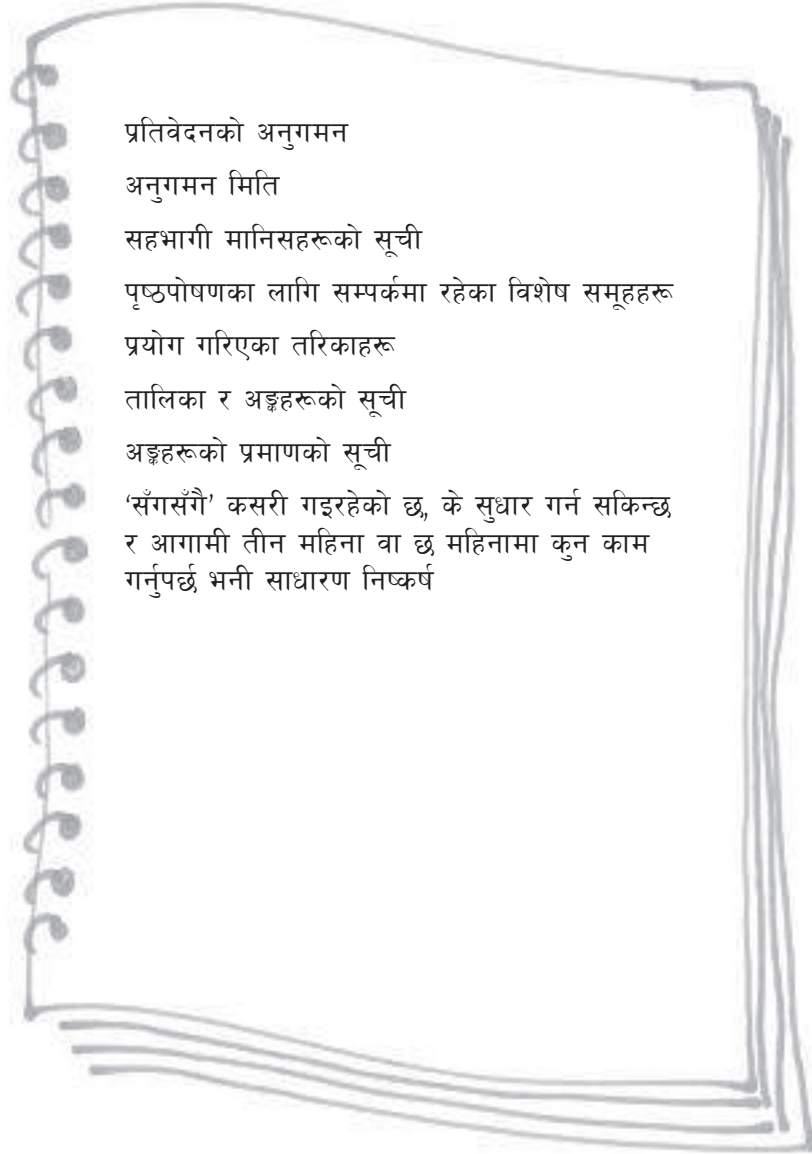 प्रतिवेदनको अनुगमन
अनुगमन मिति
सहभागी मानिसहरूको सूची
पृष्ठपोषणका लागि सम्पर्कमा रहेका विशेष समूहहरू
प्रयोग गरिएका तरिकाहरू
तालिका र अङ्कहरूको सूची
अङ्कहरूको प्रमाणको सूची
‘सँगसँगै’ कसरी गइरहेको छ, के सुधार गर्न सकिन्छ
र आगामी तीन महिना वा छ महिनामा कुन काम
गर्नुपर्छ भनी साधारण निष्कर्ष